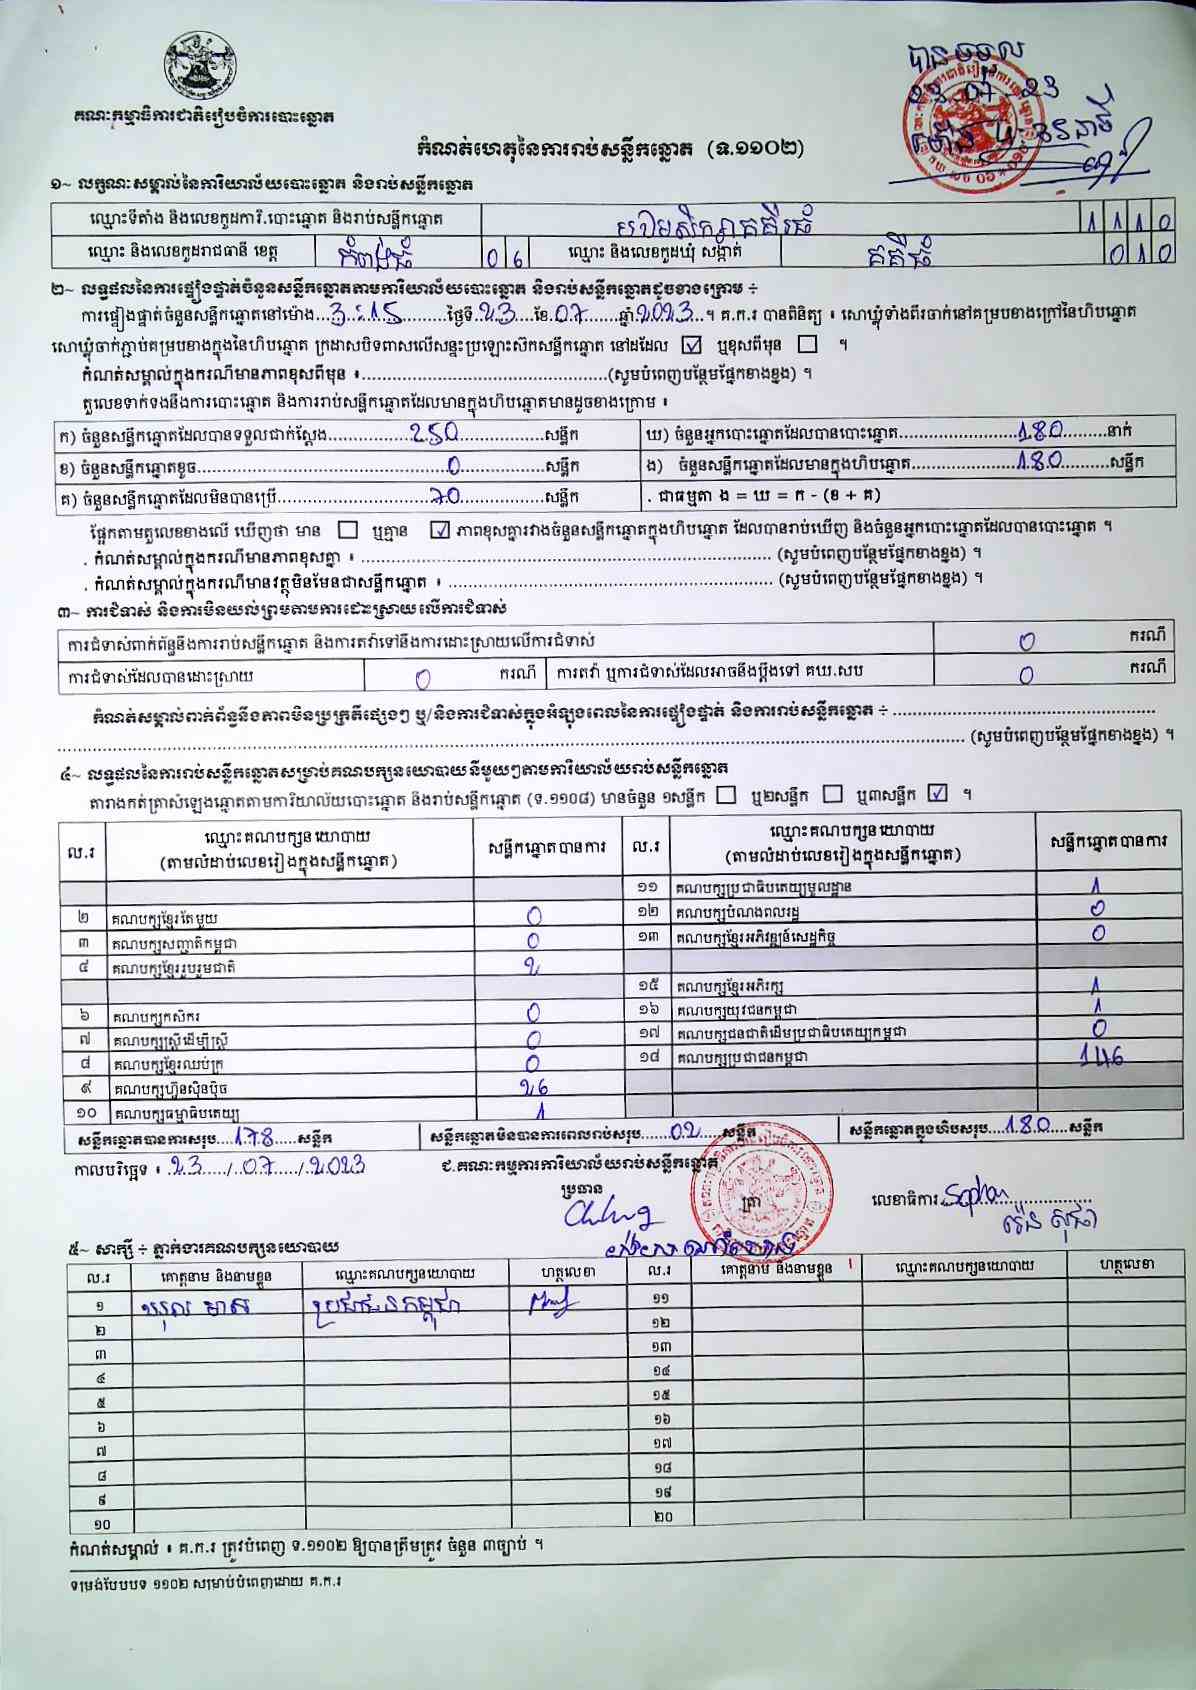 គណៈកម្មាធិការជាតិរៀបចំការបោះឆ្នោត
បានចម្លង
23 07 23
កំណត់ហេតុនៃការរាប់សន្លឹកឆ្នោត (ទ.១១០២)
១~ លក្ខណៈសម្គាល់នៃការិយាល័យបោះឆ្នោត និងរាប់សន្លឹកឆ្នោត
ឈ្មោះទីតាំង និងលេខកូដការិ.បោះឆ្នោត និងរាប់សន្លឹកឆ្នោត 1 1 1 0
ឈ្មោះ និងលេខកូដរាជធានី ខេត្ត កំពង់ធំ 0 6 ឈ្មោះ និងលេខកូដឃុំ សង្កាត់ គគីរធំ 0 1 0
២~ លទ្ធផលនៃការផ្ទៀងផ្ទាត់ចំនួនសន្លឹកឆ្នោតតាមការិយាល័យបោះឆ្នោត និងរាប់សន្លឹកឆ្នោតដូចខាងក្រោម ÷
ការផ្ទៀងផ្ទាត់ចំនួនសន្លឹកឆ្នោតនៅម៉ោង...3:15...ថ្ងៃទី.23...ខែ.07...ឆ្នាំ.2023..។ គ.ក.រ បានពិនិត្យ ៖ សោឃ្លុំទាំងពីរចាក់នៅគម្របខាងក្រៅនៃហិបឆ្នោត
សោឃ្លុំចាក់ភ្ជាប់គម្របខាងក្នុងនៃហិបឆ្នោត ក្រដាសបិទពាសលើសន្ទះប្រឡោះស៊កសន្លឹកឆ្នោត នៅដដែល ☑ ឬខុសពីមុន ☐ ។
កំណត់សម្គាល់ក្នុងករណីមានភាពខុសពីមុន ៖...(សូមបំពេញបន្ថែមផ្នែកខាងខ្នង) ។
តួលេខទាក់ទងនឹងការបោះឆ្នោត និងការរាប់សន្លឹកឆ្នោតដែលមានក្នុងហិបឆ្នោតមានដូចខាងក្រោម ៖
ក) ចំនួនសន្លឹកឆ្នោតដែលបានទទួលជាក់ស្ដែង...250...សន្លឹក ឃ) ចំនួនអ្នកបោះឆ្នោតដែលបានបោះឆ្នោត...180...នាក់
ខ) ចំនួនសន្លឹកឆ្នោតខូច...0...សន្លឹក ង) ចំនួនសន្លឹកឆ្នោតដែលមានក្នុងហិបឆ្នោត...180...សន្លឹក
គ) ចំនួនសន្លឹកឆ្នោតដែលមិនបានប្រើ...70...សន្លឹក . ជាធម្មតា ង = ឃ = ក - (ខ + គ)
ផ្អែកតាមតួលេខខាងលើ ឃើញថា មាន ☐ ឬគ្មាន ☑ ភាពខុសគ្នារវាងចំនួនសន្លឹកឆ្នោតក្នុងហិបឆ្នោត ដែលបានរាប់ឃើញ និងចំនួនអ្នកបោះឆ្នោតដែលបានបោះឆ្នោត ។
. កំណត់សម្គាល់ក្នុងករណីមានភាពខុសគ្នា ៖ ... (សូមបំពេញបន្ថែមផ្នែកខាងខ្នង) ។
. កំណត់សម្គាល់ក្នុងករណីមានវត្ថុមិនមែនជាសន្លឹកឆ្នោត ៖ ... (សូមបំពេញបន្ថែមផ្នែកខាងខ្នង) ។
៣~ ការជំទាស់ និងការមិនយល់ព្រមតាមការដោះស្រាយលើការជំទាស់
ការជំទាស់ពាក់ព័ន្ធនឹងការរាប់សន្លឹកឆ្នោត និងការតវ៉ាទៅនឹងការដោះស្រាយលើការជំទាស់ 0 ករណី
ការជំទាស់ដែលបានដោះស្រាយ 0 ករណី ការតវ៉ា ឬការជំទាស់ដែលអាចនឹងប្ដឹងទៅ គឃ.សប 0 ករណី
កំណត់សម្គាល់ពាក់ព័ន្ធនឹងភាពមិនប្រក្រតីផ្សេងៗ ឬ/និងការជំទាស់ក្នុងអំឡុងពេលនៃការផ្ទៀងផ្ទាត់ និងការរាប់សន្លឹកឆ្នោត ÷ ...
... (សូមបំពេញបន្ថែមផ្នែកខាងខ្នង) ។
៤~ លទ្ធផលនៃការរាប់សន្លឹកឆ្នោតសម្រាប់គណបក្សនយោបាយនីមួយៗតាមការិយាល័យរាប់សន្លឹកឆ្នោត
តារាងកត់ត្រាសំឡេងឆ្នោតតាមការិយាល័យបោះឆ្នោត និងរាប់សន្លឹកឆ្នោត (ទ.១១០៨) មានចំនួន ១សន្លឹក ☐ ឬ២សន្លឹក ☐ ឬ៣សន្លឹក ☑ ។
ល.រ ឈ្មោះគណបក្សនយោបាយ (តាមលំដាប់លេខរៀងក្នុងសន្លឹកឆ្នោត) សន្លឹកឆ្នោតបានការ ល.រ ឈ្មោះគណបក្សនយោបាយ (តាមលំដាប់លេខរៀងក្នុងសន្លឹកឆ្នោត) សន្លឹកឆ្នោតបានការ
១១ គណបក្សប្រជាធិបតេយ្យមូលដ្ឋាន 1
២ គណបក្សខ្មែរតែមួយ 0 ១២ គណបក្សបំណងពលរដ្ឋ 0
៣ គណបក្សសញ្ជាតិកម្ពុជា 0 ១៣ គណបក្សខ្មែរអភិវឌ្ឍន៍សេដ្ឋកិច្ច 0
៤ គណបក្សខ្មែររួបរួមជាតិ 2
១៥ គណបក្សខ្មែរអភិរក្ស 1
៦ គណបក្សកសិករ 0 ១៦ គណបក្សយុវជនកម្ពុជា 1
៧ គណបក្សស្ត្រីដើម្បីស្ត្រី 0 ១៧ គណបក្សជនជាតិដើមប្រជាធិបតេយ្យកម្ពុជា 0
៨ គណបក្សខ្មែរឈប់ក្រ 0 ១៨ គណបក្សប្រជាជនកម្ពុជា 146
៩ គណបក្សហ៊្វុនស៊ិនប៉ិច 26
១០ គណបក្សធម្មាធិបតេយ្យ 1
សន្លឹកឆ្នោតបានការសរុប...178...សន្លឹក សន្លឹកឆ្នោតមិនបានការពេលរាប់សរុប...02...សន្លឹក សន្លឹកឆ្នោតក្នុងហិបសរុប...180...សន្លឹក
កាលបរិច្ឆេទ ៖ .23.../.07.../.2023 ជ.គណៈកម្មការការិយាល័យរាប់សន្លឹកឆ្នោត
ប្រធាន ត្រា លេខាធិការ
៥~ សាក្សី ÷ ភ្នាក់ងារគណបក្សនយោបាយ
ល.រ គោត្តនាម និងនាមខ្លួន ឈ្មោះគណបក្សនយោបាយ ហត្ថលេខា ល.រ គោត្តនាម និងនាមខ្លួន ឈ្មោះគណបក្សនយោបាយ ហត្ថលេខា
១ ប្រជាជនកម្ពុជា ១១
២ ១២
៣ ១៣
៤ ១៤
៥ ១៥
៦ ១៦
៧ ១៧
៨ ១៨
៩ ១៩
១០ ២០
កំណត់សម្គាល់ ៖ គ.ក.រ ត្រូវបំពេញ ទ.១១០២ ឱ្យបានត្រឹមត្រូវ ចំនួន ៣ច្បាប់ ។
ទម្រង់បែបបទ ១១០២ សម្រាប់បំពេញដោយ គ.ក.រ